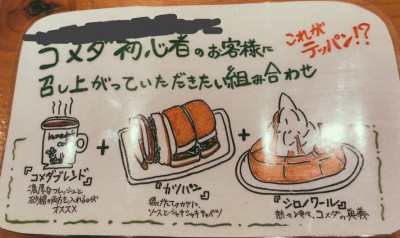 コメダ初心者のお客様に
召し上がっていただきたい組み合わせ
これが
テッパン!?
『コメダブレンド』
濃厚なフレッシュと
砂糖の両方を入れるのが
オススメ
+
『カツパン』
揚げたてのカツに、
ソースとシャキシャキキャベツ
+
『シロノワール』
コメダの奥義